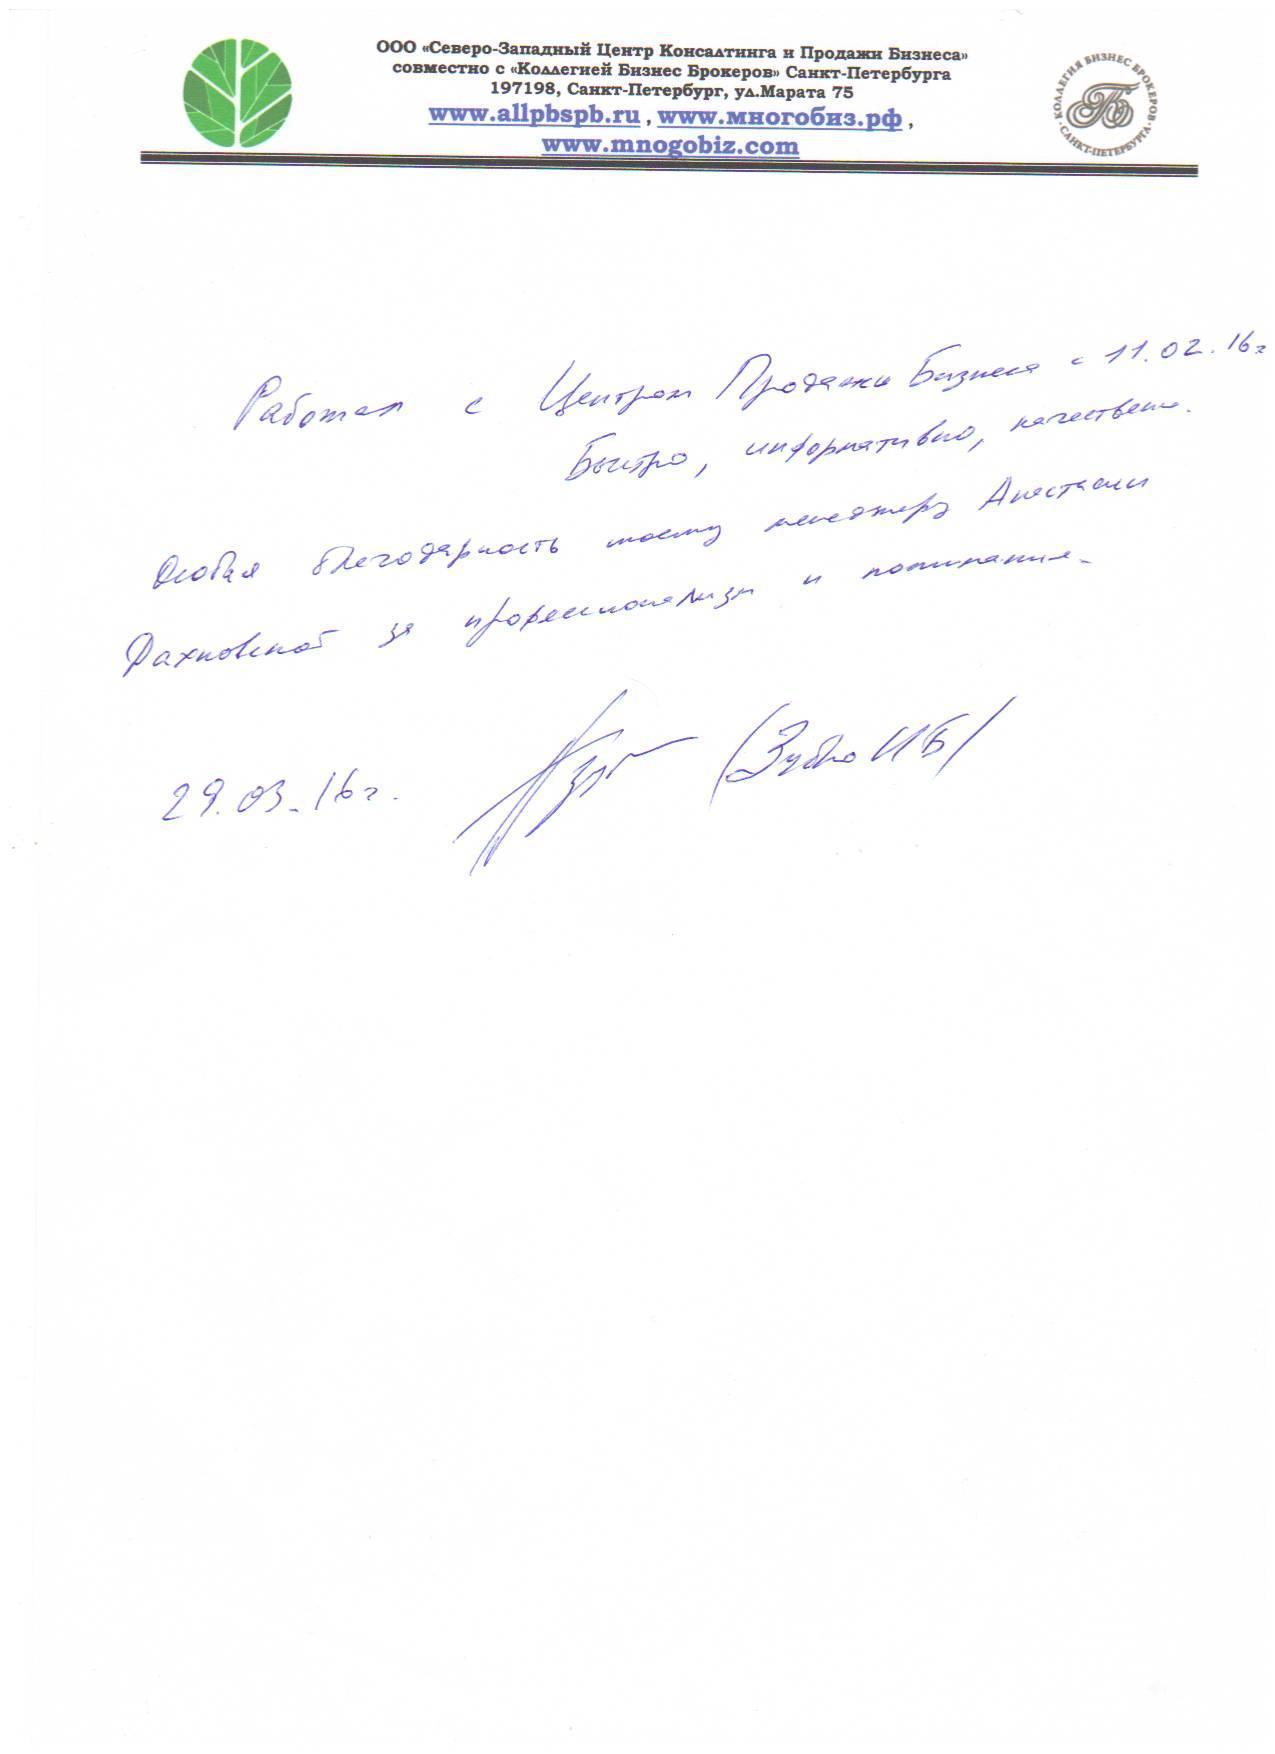 ООО «Северо-Западный Центр Консалтинга и Продажи Бизнеса»
совместно с «Коллегией Бизнес Брокеров» Санкт-Петербурга
197198, Санкт-Петербург, ул.Марата 75
www.allpbspb.ru , www.многобиз.рф ,
www.mnogobiz.com
КОЛЛЕГИЯ БИЗНЕС БРОКЕРОВ
САНКТ-ПЕТЕРБУРГА
Работал с Центром Продажи Бизнеса с 11.02.16г
Быстро, информативно, качественно.
Особая благодарность моему менеджеру Анастасии
за профессионализм и понимание.
29.03.16г. (Зубко И Б)